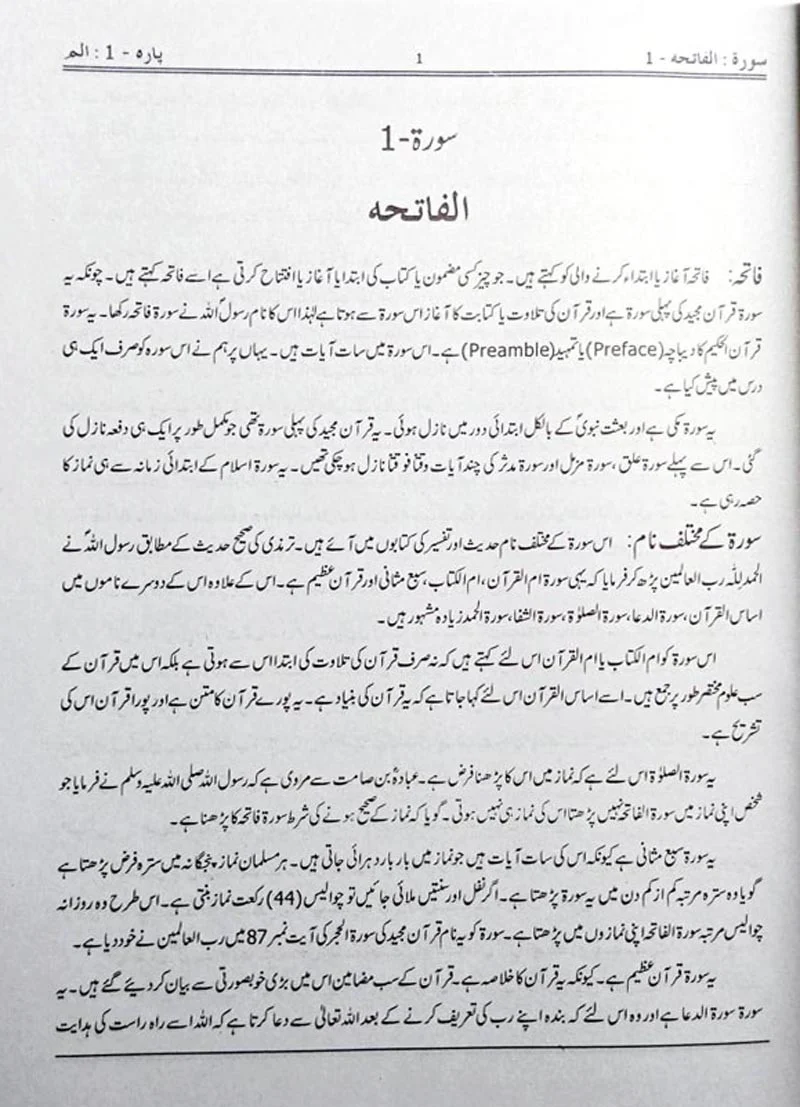 سورۃ : الفاتحہ - 1
1
پارہ - 1 : الم
سورۃ-1
الفاتحہ
فاتحہ: فاتحہ آغاز یا ابتداء کرنے والی کو کہتے ہیں۔ جو چیز کسی مضمون یا کتاب کی ابتدا یا آغاز یا افتتاح کرتی ہے اسے فاتحہ کہتے ہیں۔ چونکہ یہ
سورۃ قرآن مجید کی پہلی سورۃ ہے اور قرآن کی تلاوت یا کتابت کا آغاز اس سورۃ سے ہوتا ہے لہٰذا اس کا نام رسولؐ اللہ نے سورۃ فاتحہ رکھا۔ یہ سورۃ
قرآن الحکیم کا دیباچہ (Preface) یا تمہید (Preamble) ہے۔ اس سورۃ میں سات آیات ہیں۔ یہاں پر ہم نے اس سورہ کو صرف ایک ہی
درس میں پیش کیا ہے۔
یہ سورۃ مکی ہے اور بعثت نبویؐ کے بالکل ابتدائی دور میں نازل ہوئی۔ یہ قرآن مجید کی پہلی سورۃ تھی جو مکمل طور پر ایک ہی دفعہ نازل کی
گئی۔ اس سے پہلے سورۃ علق، سورۃ مزمل اور سورۃ مدثر کی چند آیات وقتاً فوقتاً نازل ہو چکی تھیں۔ یہ سورۃ اسلام کے ابتدائی زمانہ سے ہی نماز کا
حصہ رہی ہے۔
سورۃ کے مختلف نام: اس سورۃ کے مختلف نام حدیث اور تفسیر کی کتابوں میں آئے ہیں۔ ترمذی کی صحیح حدیث کے مطابق رسول اللہؐ نے
الحمد للہ رب العالمین پڑھ کر فرمایا کہ یہی سورۃ ام القرآن، ام الکتاب، سبع مثانی اور قرآن عظیم ہے۔ اس کے علاوہ اس کے دوسرے ناموں میں
اساس القرآن، سورۃ الدعا، سورۃ الصلوٰۃ، سورۃ الشفا، سورۃ الحمد زیادہ مشہور ہیں۔
اس سورۃ کو ام الکتاب یا ام القرآن اس لئے کہتے ہیں کہ نہ صرف قرآن کی تلاوت کی ابتدا اس سے ہوتی ہے بلکہ اس میں قرآن کے
سب علوم مختصر طور پر جمع ہیں۔ اسے اساس القرآن اس لئے کہا جاتا ہے کہ یہ قرآن کی بنیاد ہے۔ یہ پورے قرآن کا متن ہے اور پورا قرآن اس کی
تشریح ہے۔
یہ سورۃ الصلوٰۃ اس لئے ہے کہ نماز میں اس کا پڑھنا فرض ہے۔ عبادہؓ بن صامت سے مروی ہے کہ رسول اللہ صلی اللہ علیہ وسلم نے فرمایا جو
شخص اپنی نماز میں سورۃ الفاتحہ نہیں پڑھتا اس کی نماز ہی نہیں ہوتی۔ گویا کہ نماز کے صحیح ہونے کی شرط سورۃ فاتحہ کا پڑھنا ہے۔
یہ سورۃ سبع مثانی ہے کیونکہ اس کی سات آیات ہیں جو نماز میں بار بار دہرائی جاتی ہیں۔ ہر مسلمان نماز پنجگانہ میں سترہ فرض پڑھتا ہے
گویا وہ سترہ مرتبہ کم از کم دن میں یہ سورۃ پڑھتا ہے۔ اگر نفل اور سنتیں ملائی جائیں تو چوالیس (44) رکعت نماز بنتی ہے۔ اس طرح وہ روزانہ
چوالیس مرتبہ سورۃ الفاتحہ اپنی نمازوں میں پڑھتا ہے۔ سورۃ کو یہ نام قرآن مجید کی سورۃ الحجر کی آیت نمبر 87 میں رب العالمین نے خود دیا ہے۔
یہ سورۃ قرآن عظیم ہے۔ کیونکہ یہ قرآن کا خلاصہ ہے۔ قرآن کے سب مضامین اس میں بڑی خوبصورتی سے بیان کر دیئے گئے ہیں۔ یہ
سورۃ سورۃ الدعا ہے اور وہ اس لئے کہ بندہ اپنے رب کی تعریف کرنے کے بعد اللہ تعالیٰ سے دعا کرتا ہے کہ اللہ اسے راہ راست کی ہدایت